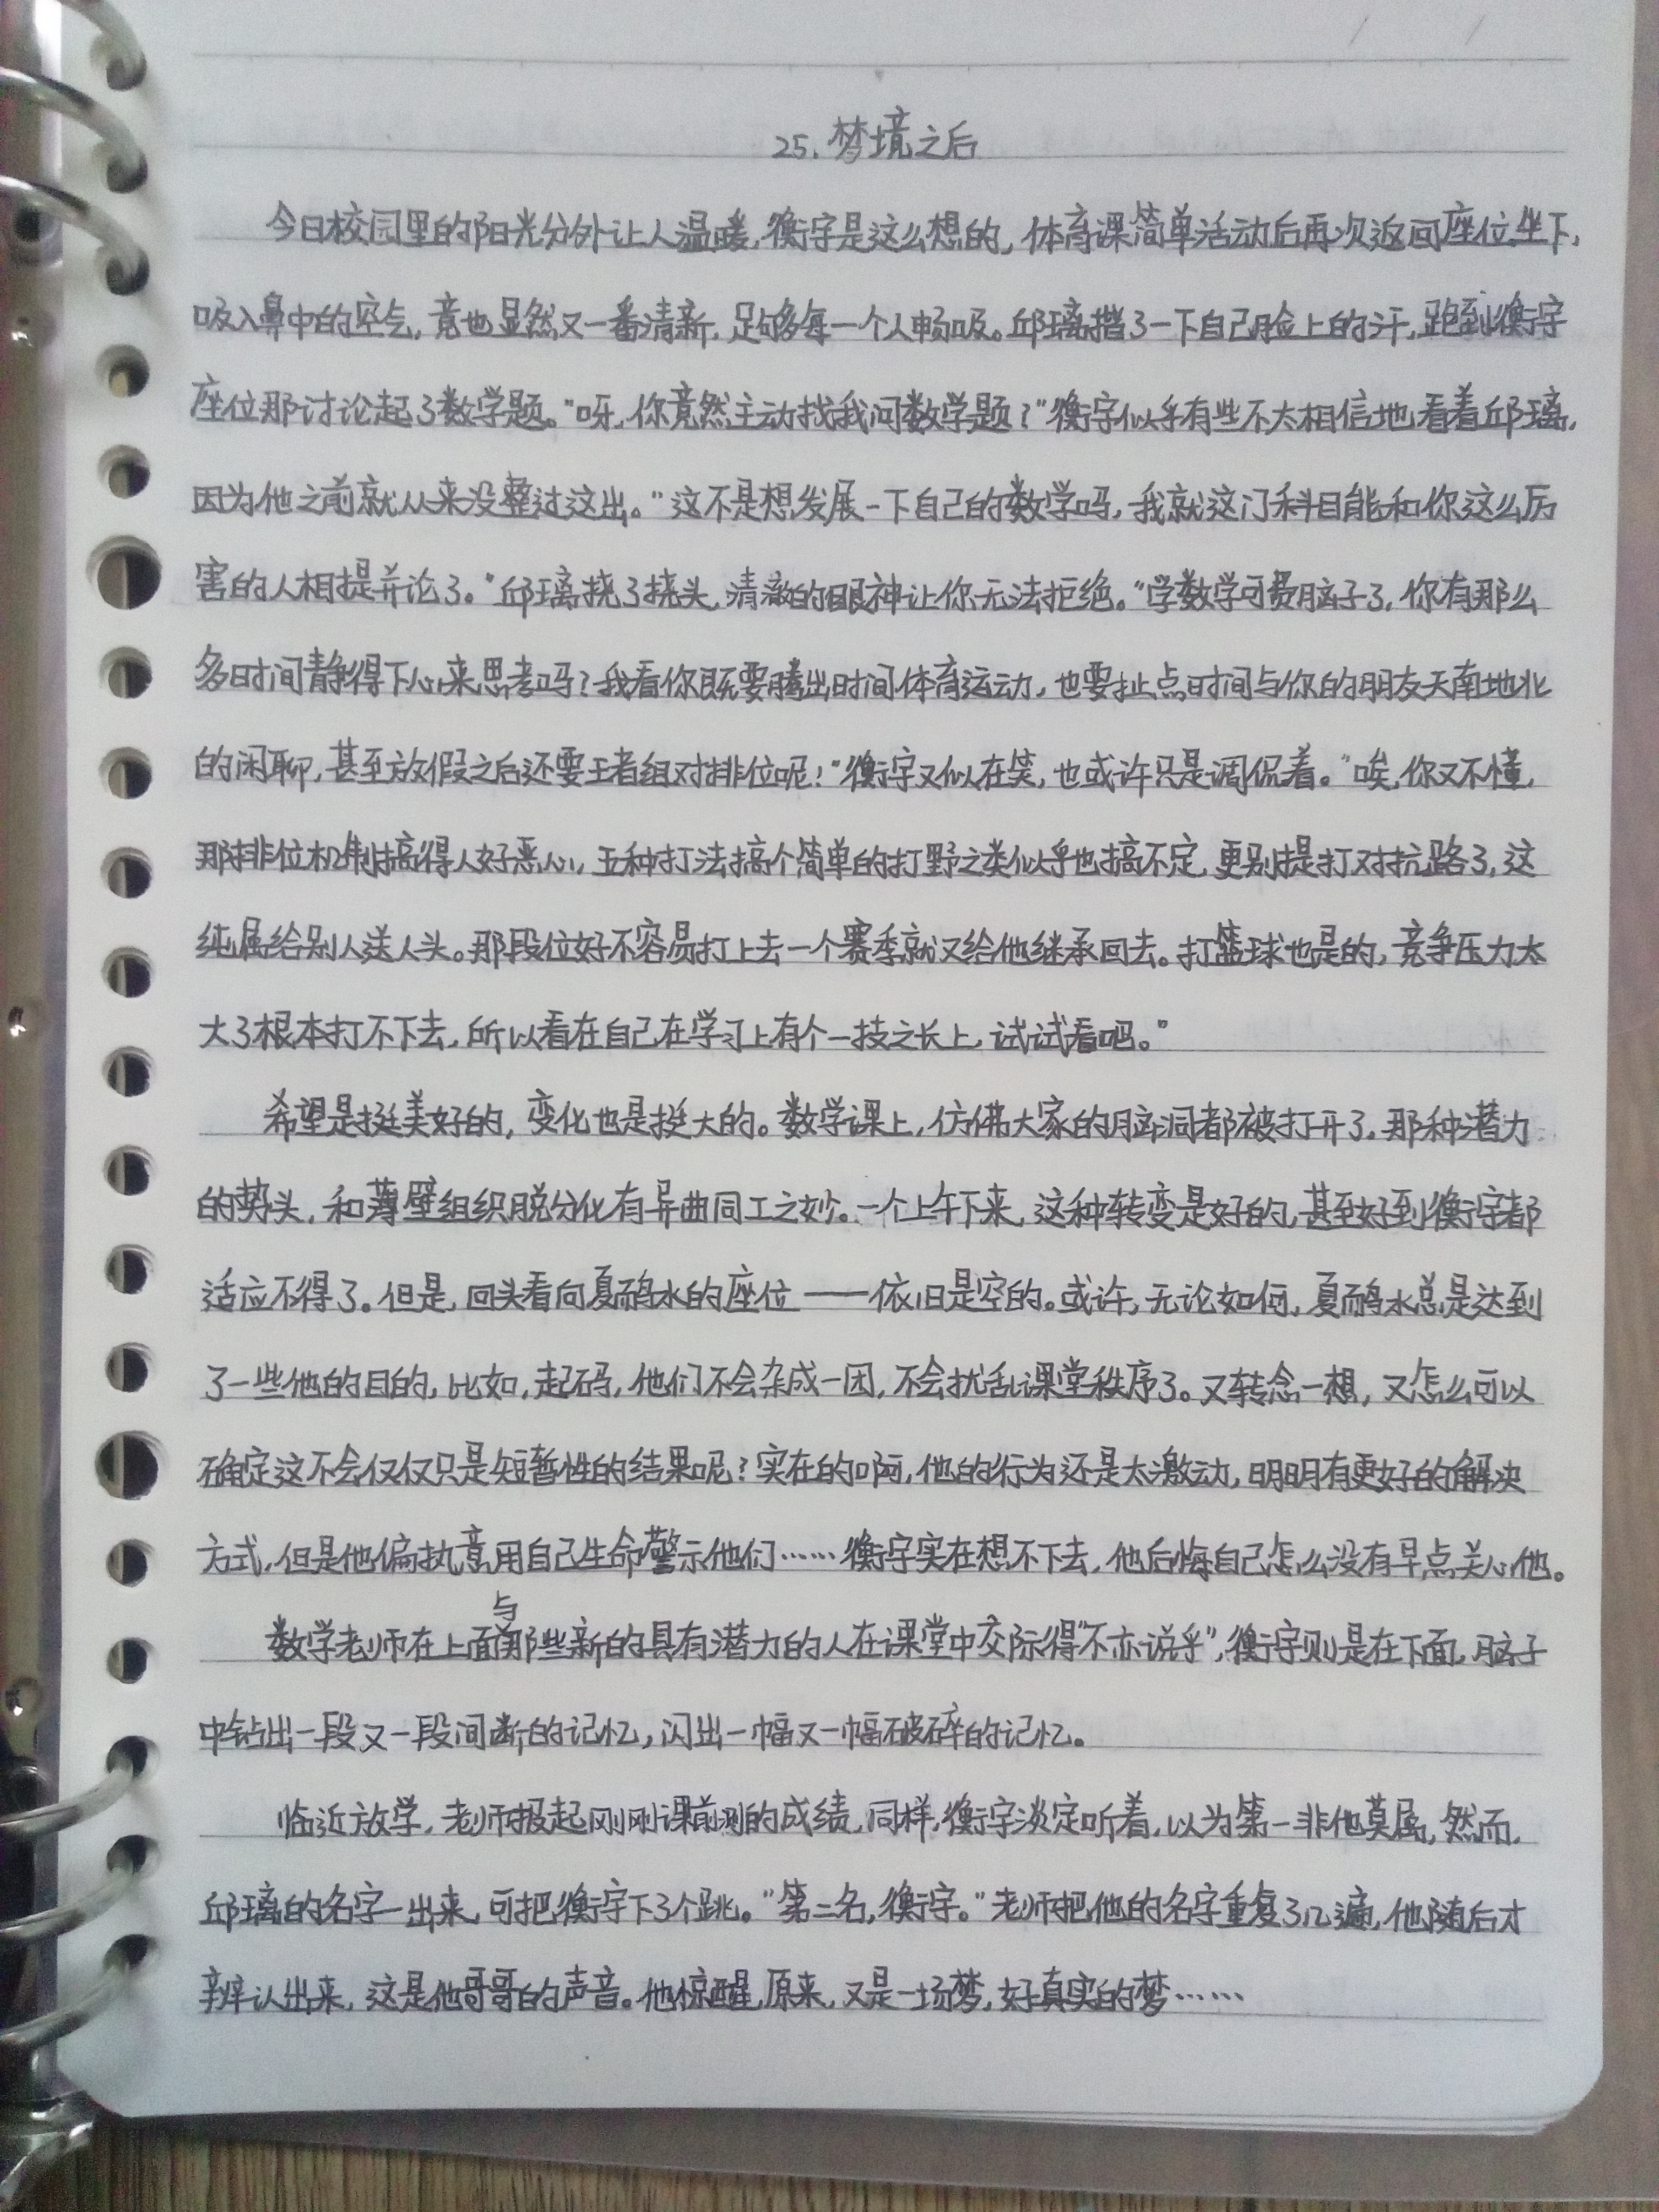 25. 梦境之后
今日校园里的阳光分外让人温暖,衡宇是这么想的,体育课简单活动后再次返回座位坐下,
吸入鼻中的空气,竟也显然又一番清新,足够每一个人畅吸。邱璃揩了一下自己脸上的汗,跑到衡宇
座位那讨论起了数学题。"呀,你竟然主动找我问数学题?"衡宇似乎有些不太相信地看着邱璃,
因为他之前就从来没整过这出。"这不是想发展一下自己的数学吗,我就这门科目能和你这么厉
害的人相提并论了。"邱璃挠了挠头,清澈的眼神让你无法拒绝。"学数学可费脑子了,你有那么
多时间静得下心来思考吗?我看你既要腾出时间体育运动,也要扯点时间与你的朋友天南地北
的闲聊,甚至放假之后还要王者组对排位呢!"衡宇又似在笑,也或许只是调侃着。"唉,你又不懂,
那排位机制搞得人好恶心,五种打法搞个简单的打野之类似乎也搞不定,更别提打对抗路了,这
纯属给别人送人头。那段位好不容易打上去一个赛季就又给他继承回去。打篮球也是的,竞争压力太
大了根本打不下去,所以看在自己在学习上有个一技之长上,试试看吧。"
希望是挺美好的,变化也是挺大的。数学课上,仿佛大家的脑洞都被打开了,那种潜力
的势头,和薄壁组织脱分化有异曲同工之妙。一个上午下来,这种转变是好的,甚至好到衡宇都
适应不得了。但是,回头看向夏鸸水的座位——依旧是空的。或许,无论如何,夏鸸水总是达到
了一些他的目的,比如,起码,他们不会杂成一团,不会扰乱课堂秩序了。又转念一想,又怎么可以
确定这不会仅仅只是短暂性的结果呢?实在的啊,他的行为还是太激动,明明有更好的解决
方式,但是他偏执意用自己生命警示他们……衡宇实在想不下去,他后悔自己怎么没有早点关心他。
数学老师在上面与那些新的具有潜力的人在课堂中交际得"不亦说乎",衡宇则是在下面,脑子
中钻出一段又一段间断的记忆,闪出一幅又一幅破碎的记忆。
临近放学,老师报起刚刚课前测的成绩,同样,衡宇淡定听着,以为第一非他莫属,然而,
邱璃的名字一出来,可把衡宇下了个跳。"第二名,衡宇。"老师把他的名字重复了几遍,他随后才
辨认出来,这是他哥哥的声音。他惊醒,原来,又是一场梦,好真实的梦……